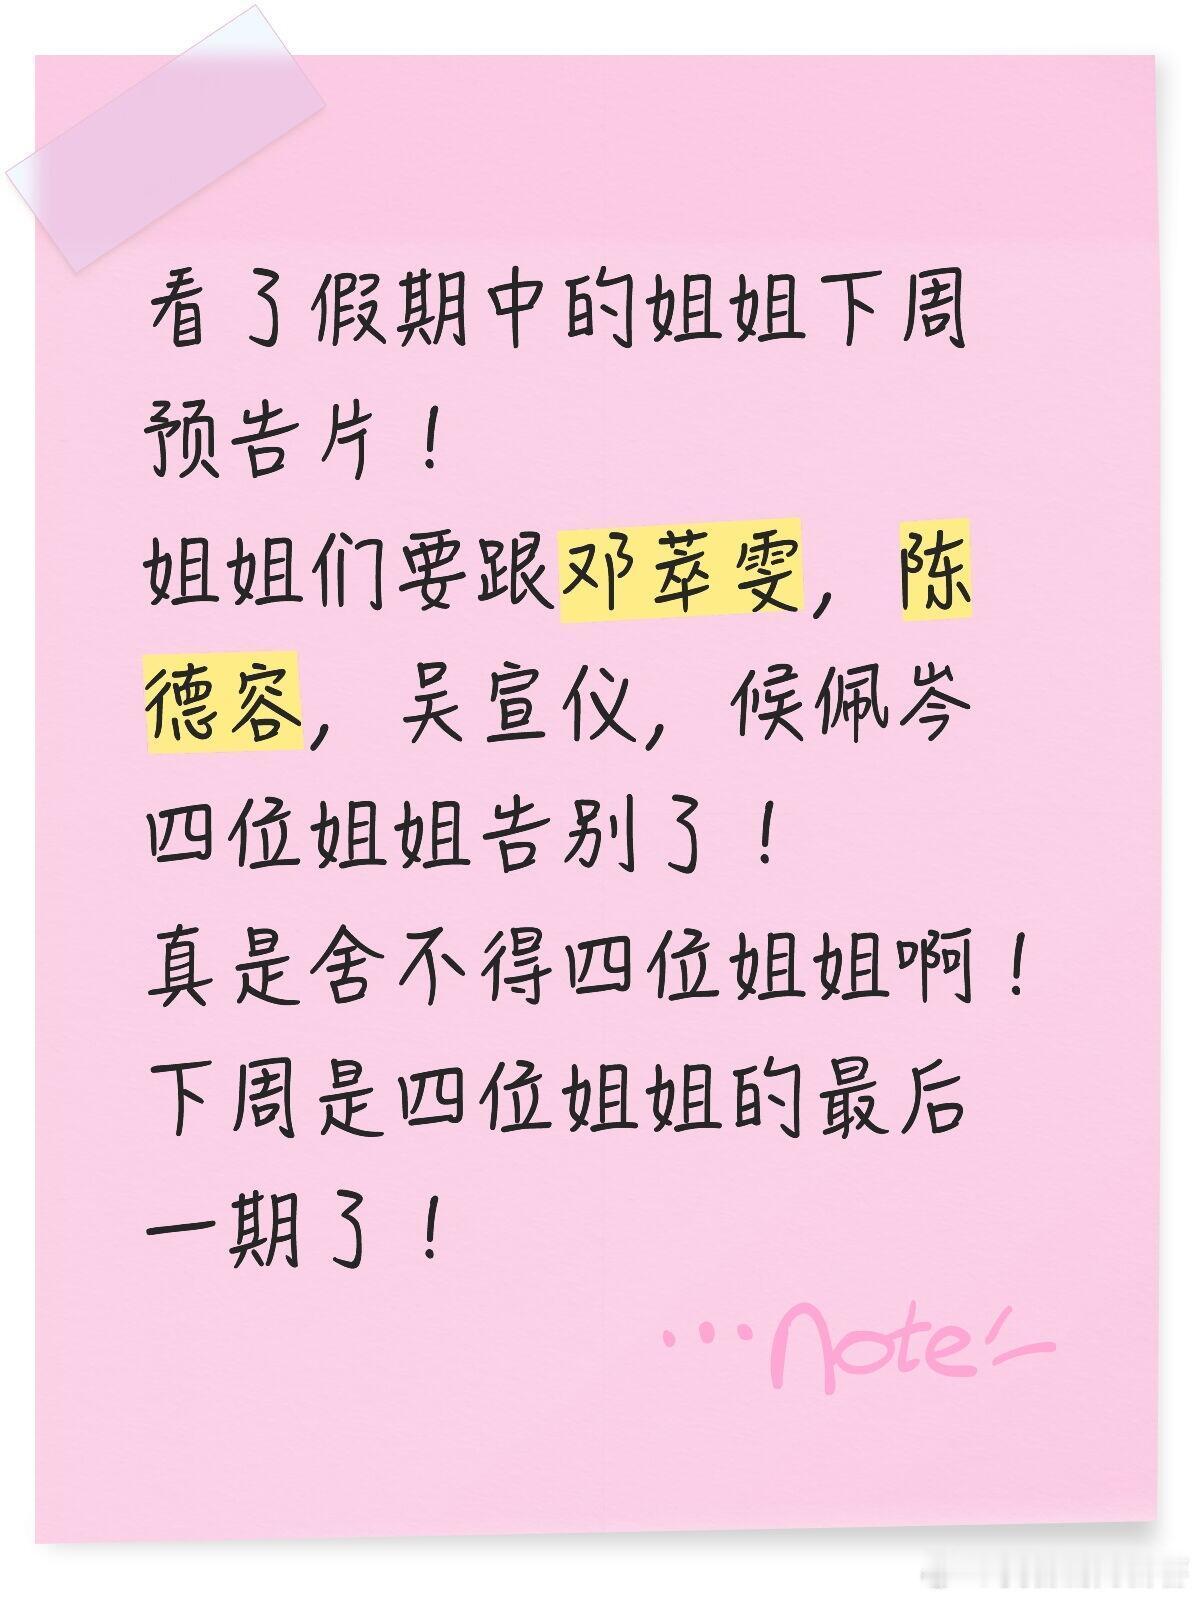 看了假期中的姐姐下周
预告片！
姐姐们要跟邓萃雯，陈
德容，吴宣仪，候佩岑
四位姐姐告别了！
真是舍不得四位姐姐啊！
下周是四位姐姐的最后
一期了！
...note